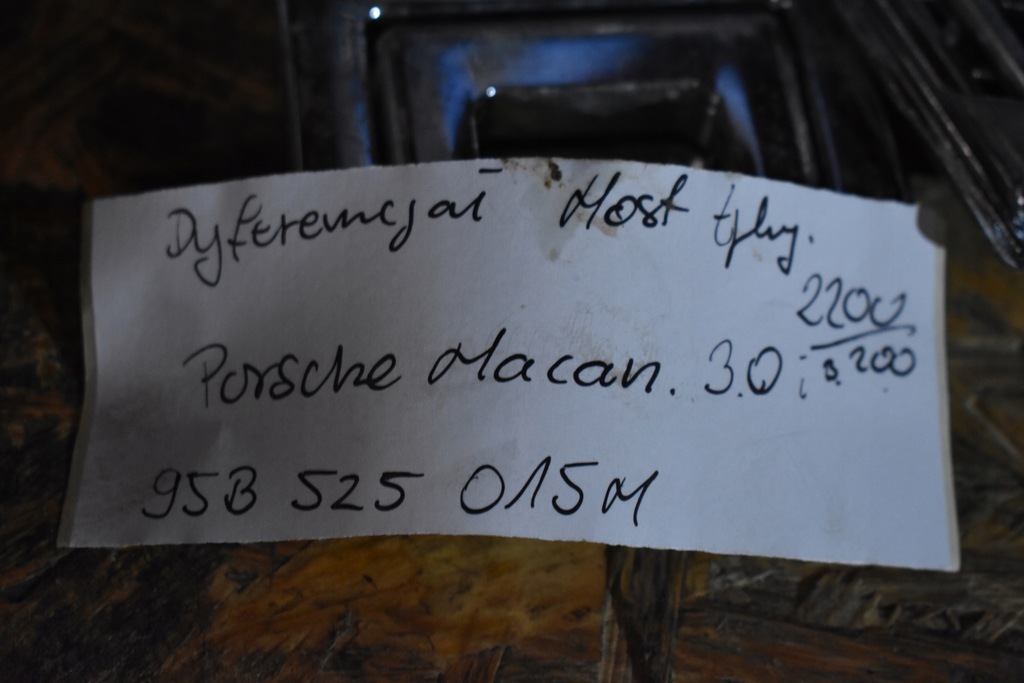 Dyferencjał Most tylny.
2200
Porsche Macan. 3.0; 3.200
95B 525 015M